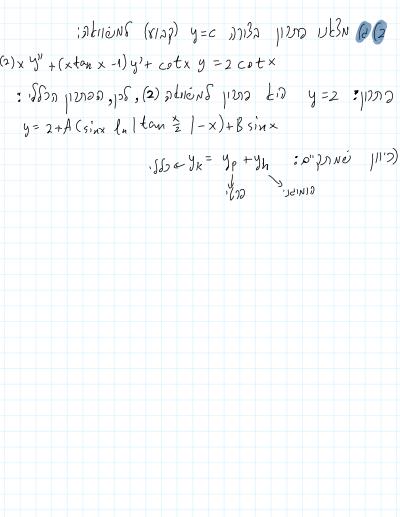 2) ב) מצאנו פתרון בצורה y=c (קבוע) למשוואה:
(2) x y'' + (x tan x -1) y' + cot x y = 2 cot x
פתרון: y=2 היא פתרון למשוואה (2), לכן, הפתרון הכללי:
y = 2+A(sinx ln|tan x/2|-x)+B sinx
כיוון שמתקיים: y_p + y_h = y_k ← כללי
פרטי הומוגני